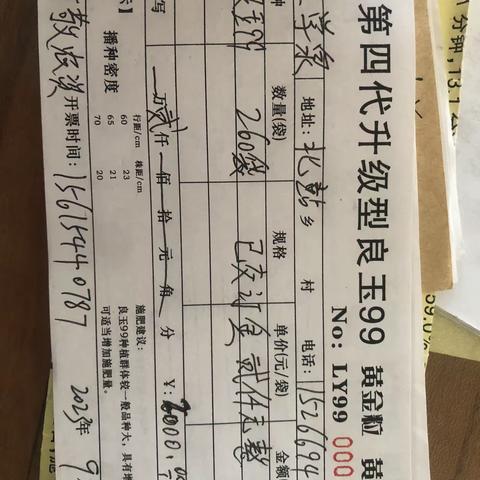 第四代升级型良玉99 黄金粒 黄
No: LY99 000
地址: 北 乡 村 电话: 1526694
种 数量(袋) 规格 单价(元/袋) 金额
良玉99 260袋 已交订金贰仟元整
写 万贰仟 佰 拾 元 角 分 ¥: 2000.00
播种密度
行距/cm 株距/cm
60 23
65 21
70 20
施肥建议:
良玉99种植群体较一般品种大，具有增
可适当增加施肥量。
开票时间: 15615440787 2023年 9